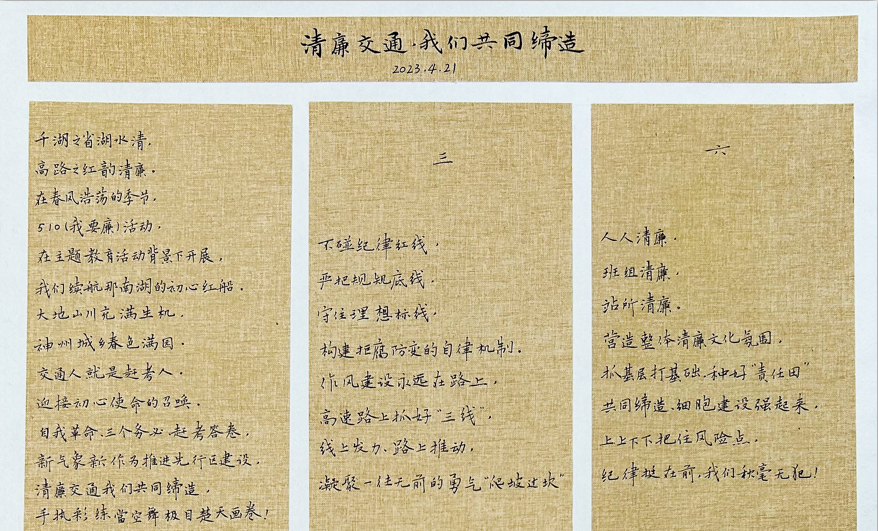 清廉交通·我们共同缔造
2023.4.21
千湖之省湖水清，
高路之红韵清廉。
在春风浩荡的季节，
510（我要廉）活动。
在主题教育活动背景下开展，
我们续航那南湖的初心红船。
大地山川充满生机，
神州城乡春色满园。
交通人就是赶考人。
迎接初心使命的召唤。
自我革命、三个务必、赶考答卷，
新气象新作为推进先行区建设，
清廉交通我们共同缔造，
手执彩练当空舞极目楚天画卷！
三
不碰纪律红线，
严把规矩底线。
守住理想标线，
构建拒腐防变的自律机制。
作风建设永远在路上，
高速路上抓好“三线”，
线上发力、路上推动，
凝聚一往无前的勇气“爬坡过坎”
六
人人清廉。
班组清廉，
站所清廉。
营造整体清廉文化氛围，
抓基层打基础、种好“责任田”
共同缔造、细胞建设强起来，
上上下下把住风险点，
纪律挺在前，我们秋毫无犯！